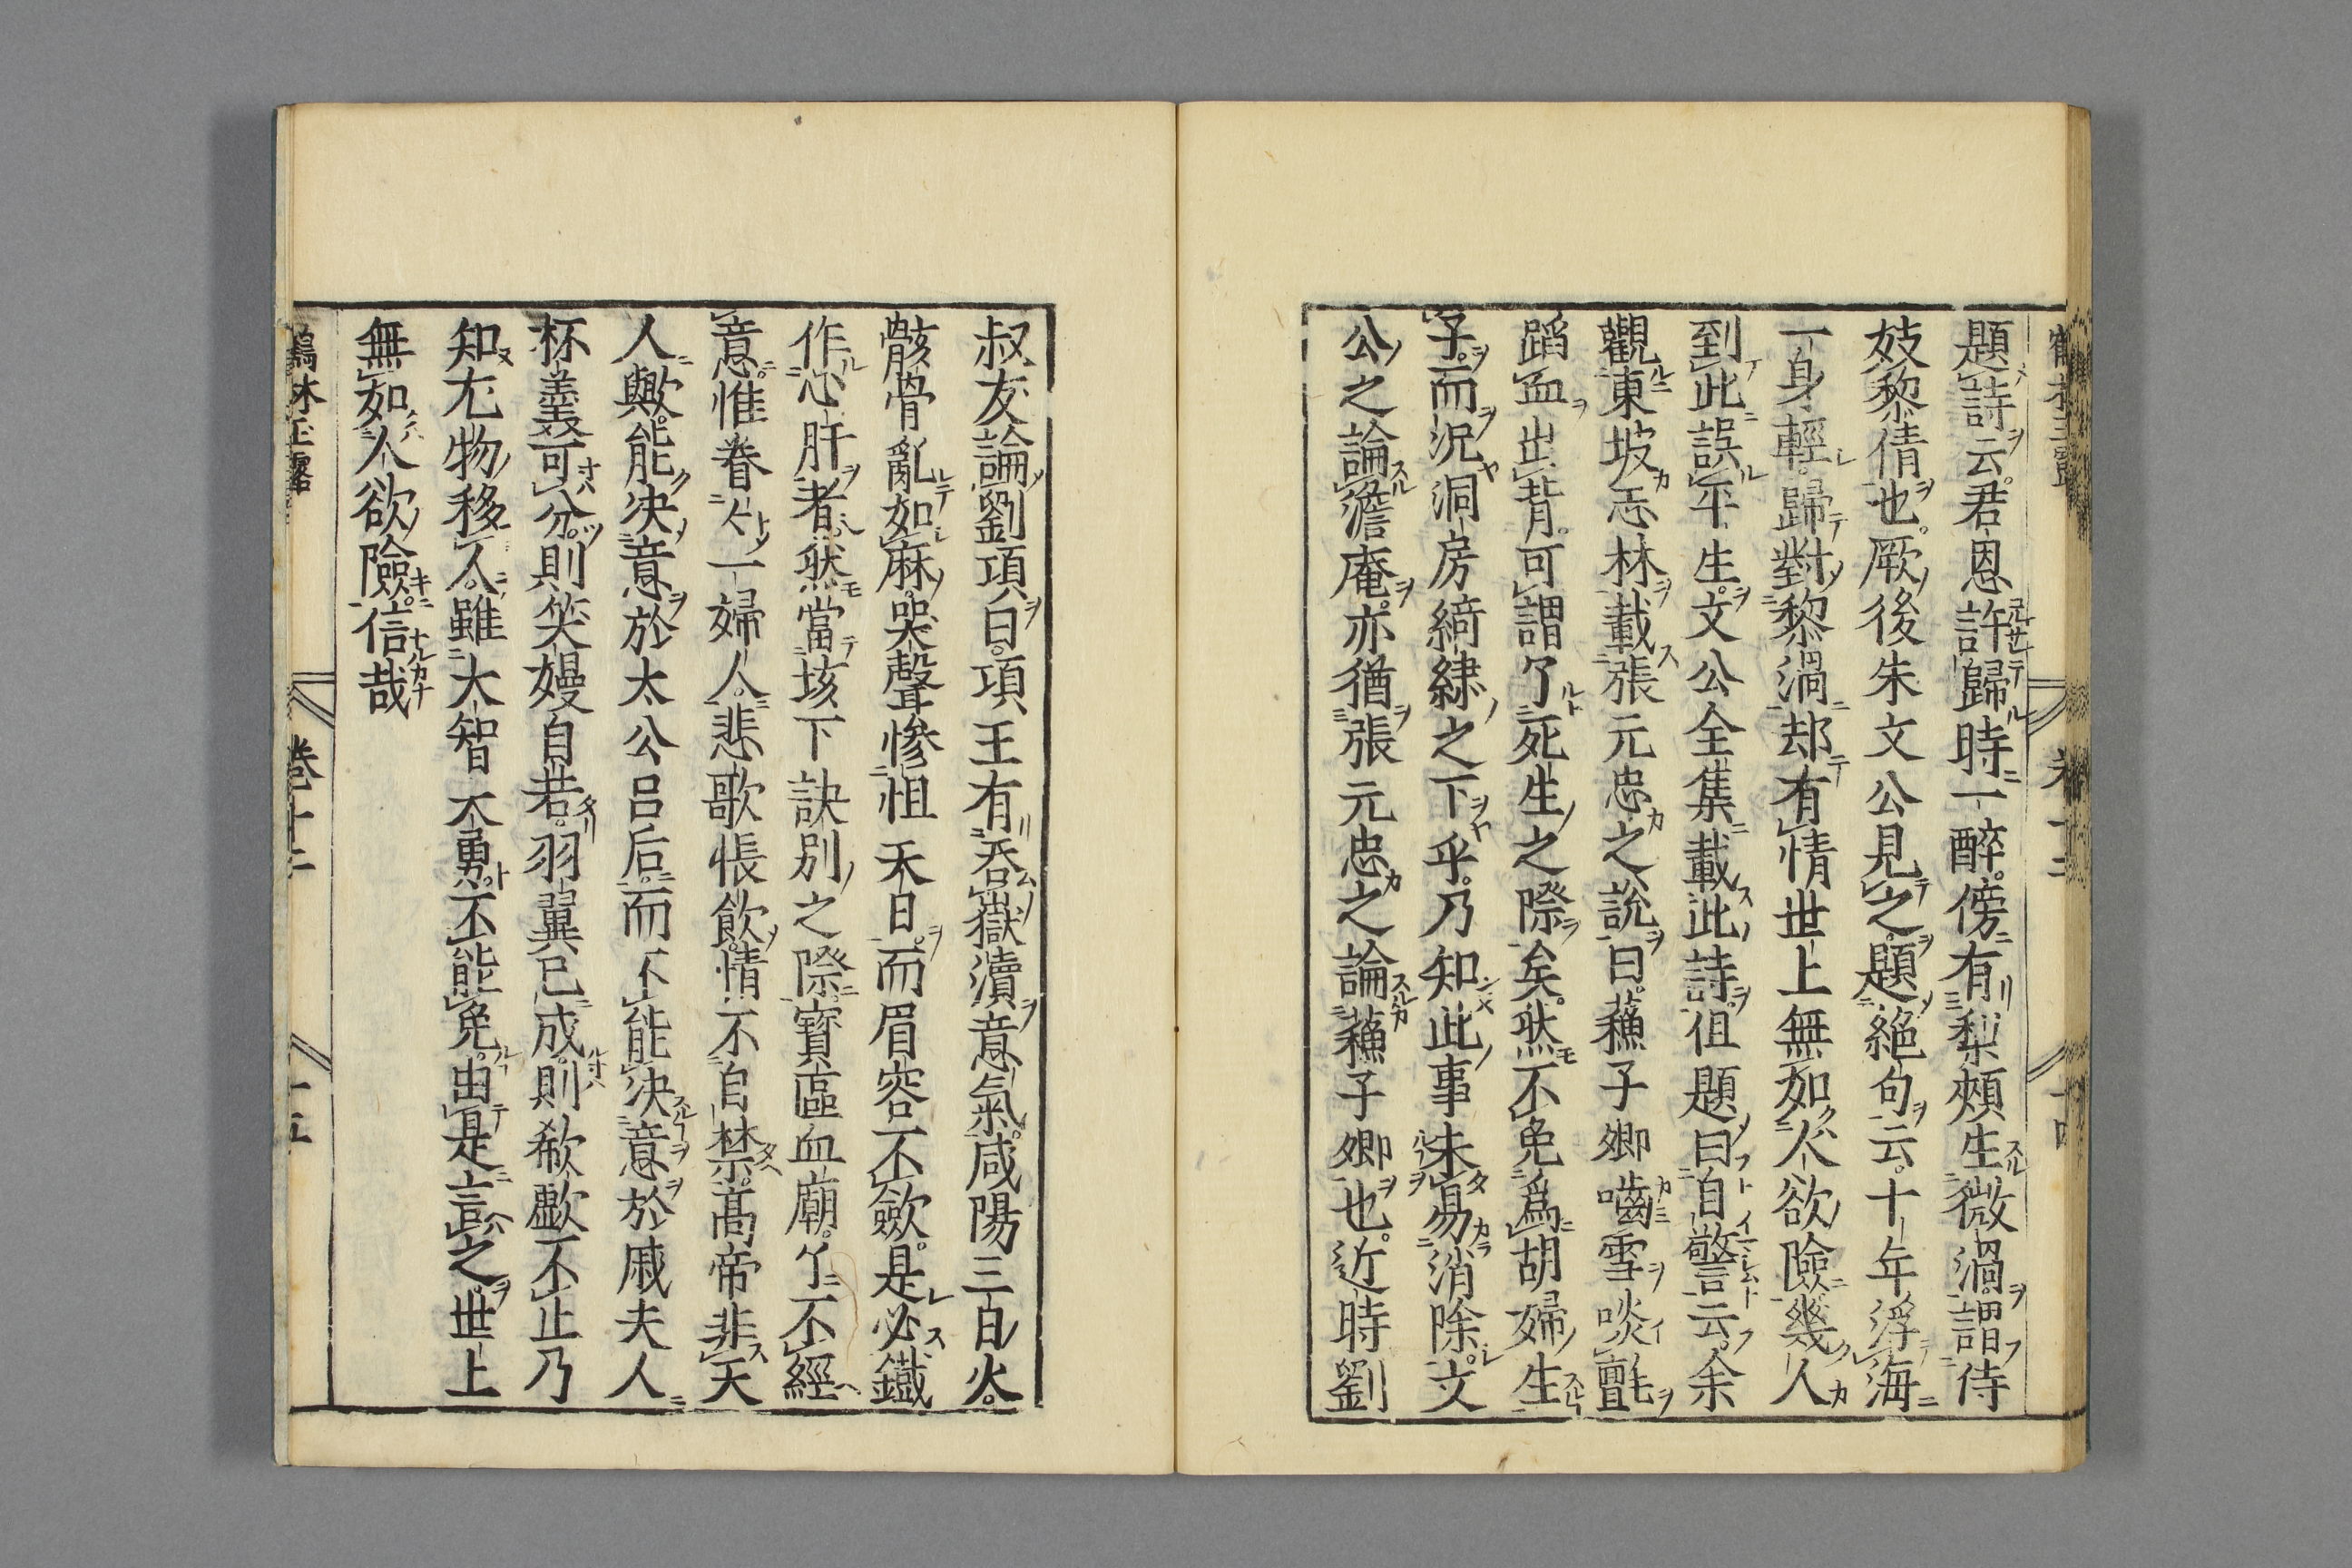 題詩云君恩許歸時一醉傍有梨頰生微渦謂侍
妓黎倩也厥後朱文公見之題絕句云十年浮海
一身輕歸對黎渦却有情世上無如人欲險幾人
到此誤平生文公全集載此詩但題曰自警云余
觀東坡志林載張元忠之說曰蘓子卿嚙雪啖氊
蹈血出背可謂了死生之際矣然不免爲胡婦生
子而况洞房綺繡之下乎乃知此事未易消除文
公之論澹庵亦猶張元忠之論蘓子卿也近時劉
叔友論劉項曰項王有吞嶽瀆意氣咸陽三月火
骸骨亂如麻哭聲慘怛天日而眉容不歛是必鐵
作心肝者然當垓下訣別之際寶區血廟了不經
意惟眷眷一婦人悲歌悵飲情不自禁高帝非天
人歟能決意於太公呂后而不能決意於戚夫人
杯羹可分則笑嫚自若羽翼已成則欷歔不止乃
知尤物移人雖大智大勇不能免由是言之世上
無如人欲險信哉
鶴林玉露 卷十二 十五